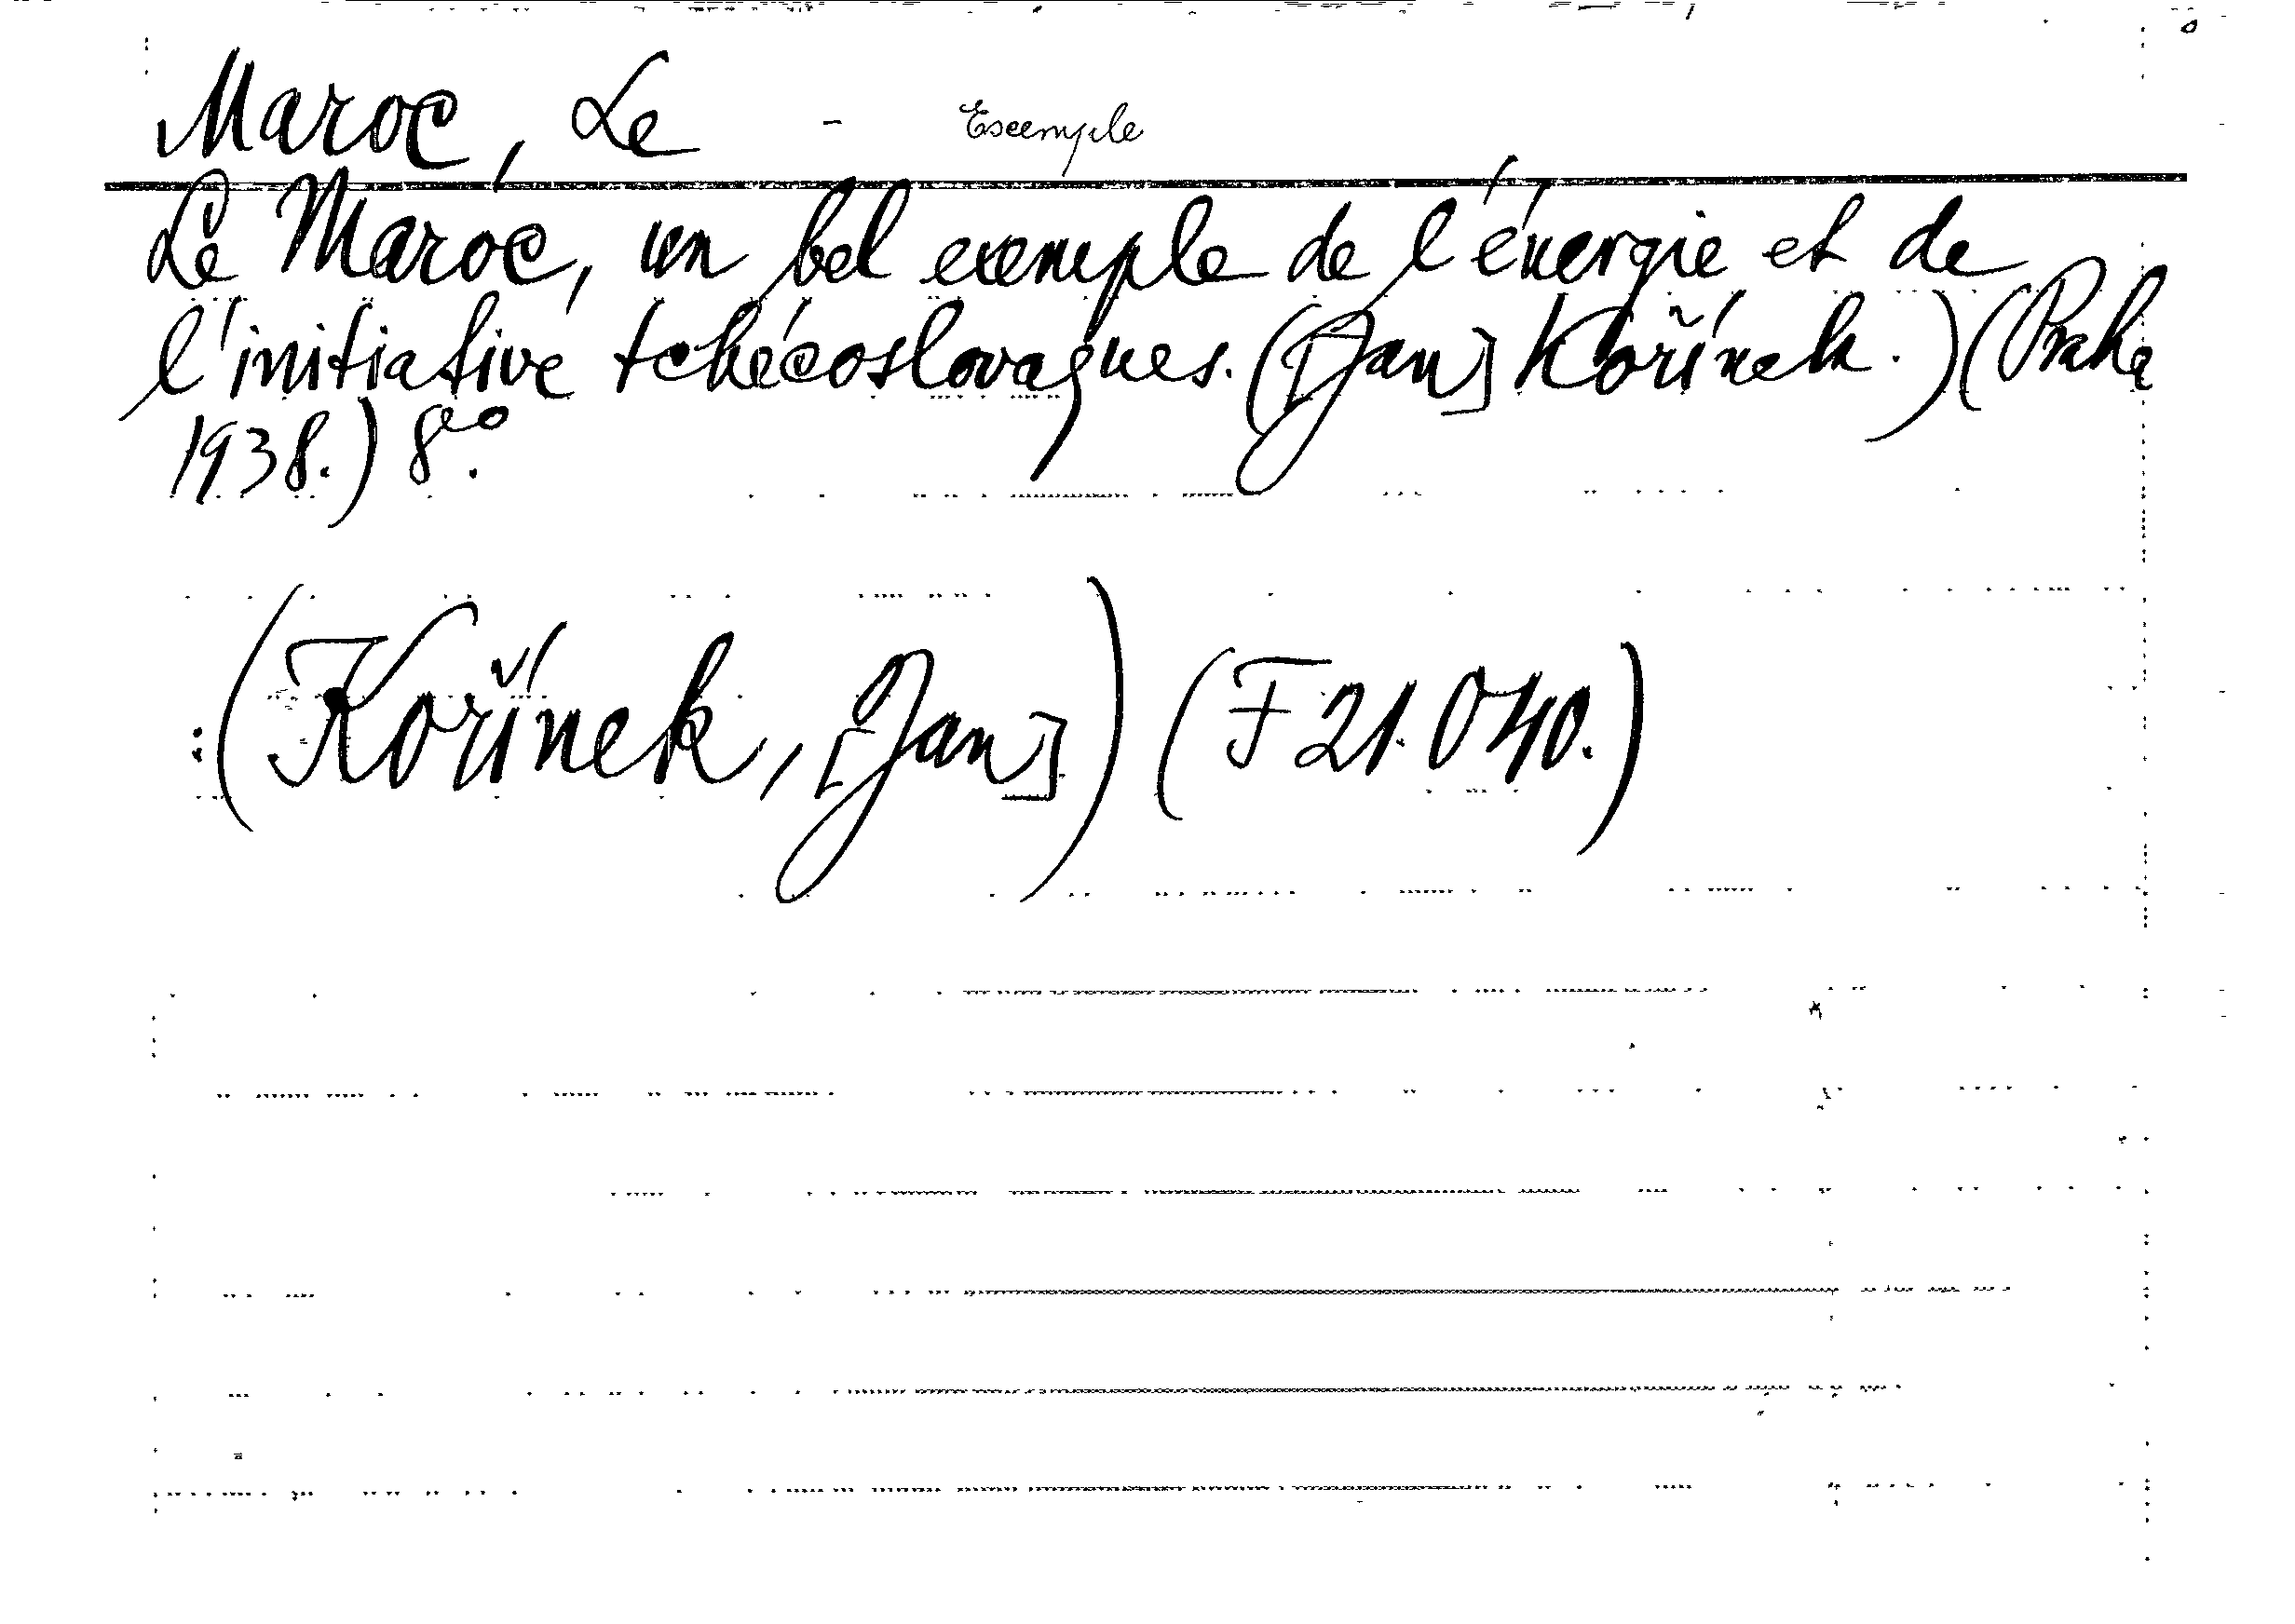 Maroc, Le - Exemple
Le Maroc, un bel exemple de l'énergie et de
l'initiative tchécoslovaques. ([Jan] Kořínek.) (Praha
1938.) 8°.
(Kořínek, [Jan]) (F 21.040.)